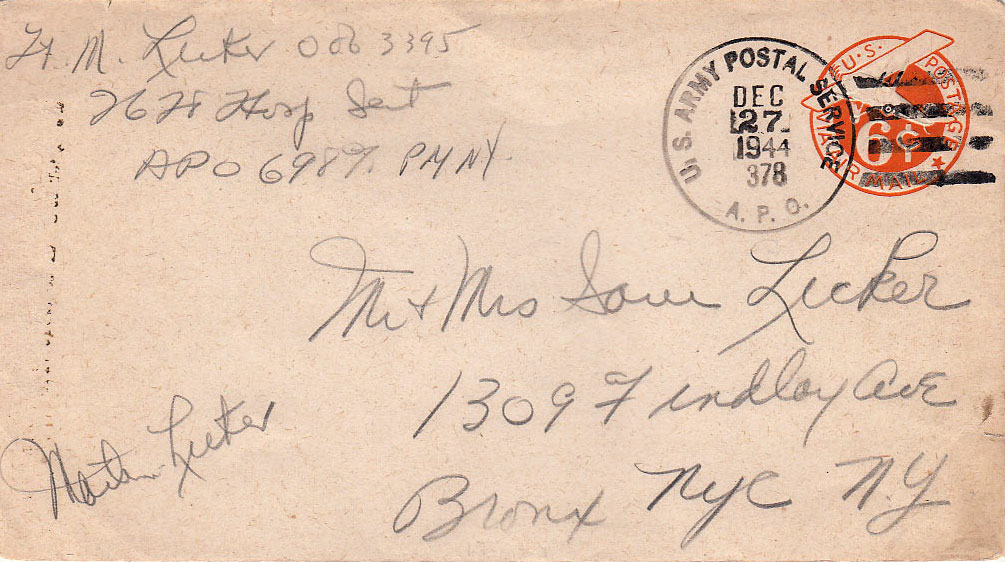 Lt. M. Lecker O863395
26 Fd Hosp
APO 698 % PM NY
U.S. ARMY POSTAL SERVICE
DEC
27
1944
378
A.P.O.
U.S. POSTAGE
6¢
VIA AIR MAIL
Mr + Mrs Sam Lecker
1309 Findlay Ave
Bronx NYC N.Y
Martin Lecker